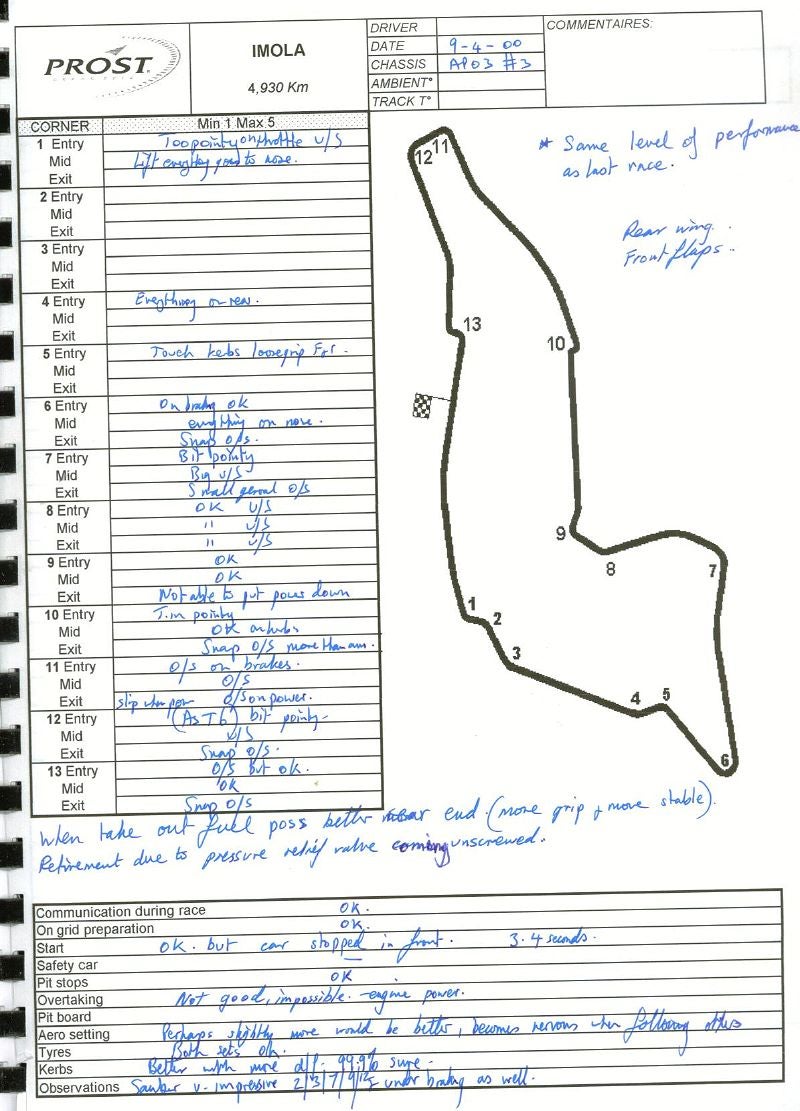 PROST
IMOLA
4,930 Km
DRIVER
DATE 9-4-00
CHASSIS AP03 #3
AMBIENT°
TRACK T°
COMMENTAIRES:
CORNER Min 1 Max 5
1 Entry Too pointy on throttle U/S
Mid Lift everything goes to nose.
Exit
2 Entry
Mid
Exit
3 Entry
Mid
Exit
4 Entry Everything on rear.
Mid
Exit
5 Entry Touch kerbs loose grip F+r.
Mid
Exit
6 Entry On braking OK
Mid everything on nose.
Exit Snap O/S.
7 Entry Bit pointy
Mid Big U/S
Exit Small general O/S
8 Entry OK U/S
Mid " U/S
Exit " U/S
9 Entry OK
Mid OK
Exit Not able to put power down
10 Entry T.in pointy
Mid OK on kerbs
Exit Snap O/S more than am.
11 Entry O/S on brakes.
Mid O/S
Exit slip when power O/S on power.
12 Entry (As T6) bit pointy
Mid U/S
Exit Snap O/S.
13 Entry O/S but OK.
Mid OK
Exit Snap O/S
* Same level of performance
as last race.
Rear wing.
Front flaps.
12 11
13
10
9
8
7
1
2
3
4 5
6
When take out fuel poss better near end. (more grip + more stable).
Retirement due to pressure relief valve coming unscrewed.
Communication during race OK.
On grid preparation OK.
Start OK. but car stopped in front. 3.4 seconds.
Safety car
Pit stops OK
Overtaking Not good, impossible. - engine power.
Pit board
Aero setting Perhaps slightly more would be better, becomes nervous when following others
Tyres Both sets OK.
Kerbs Better with more d/f. 99.9% sure.
Observations Sauber v. impressive 2/3/7/9/12 under braking as well.